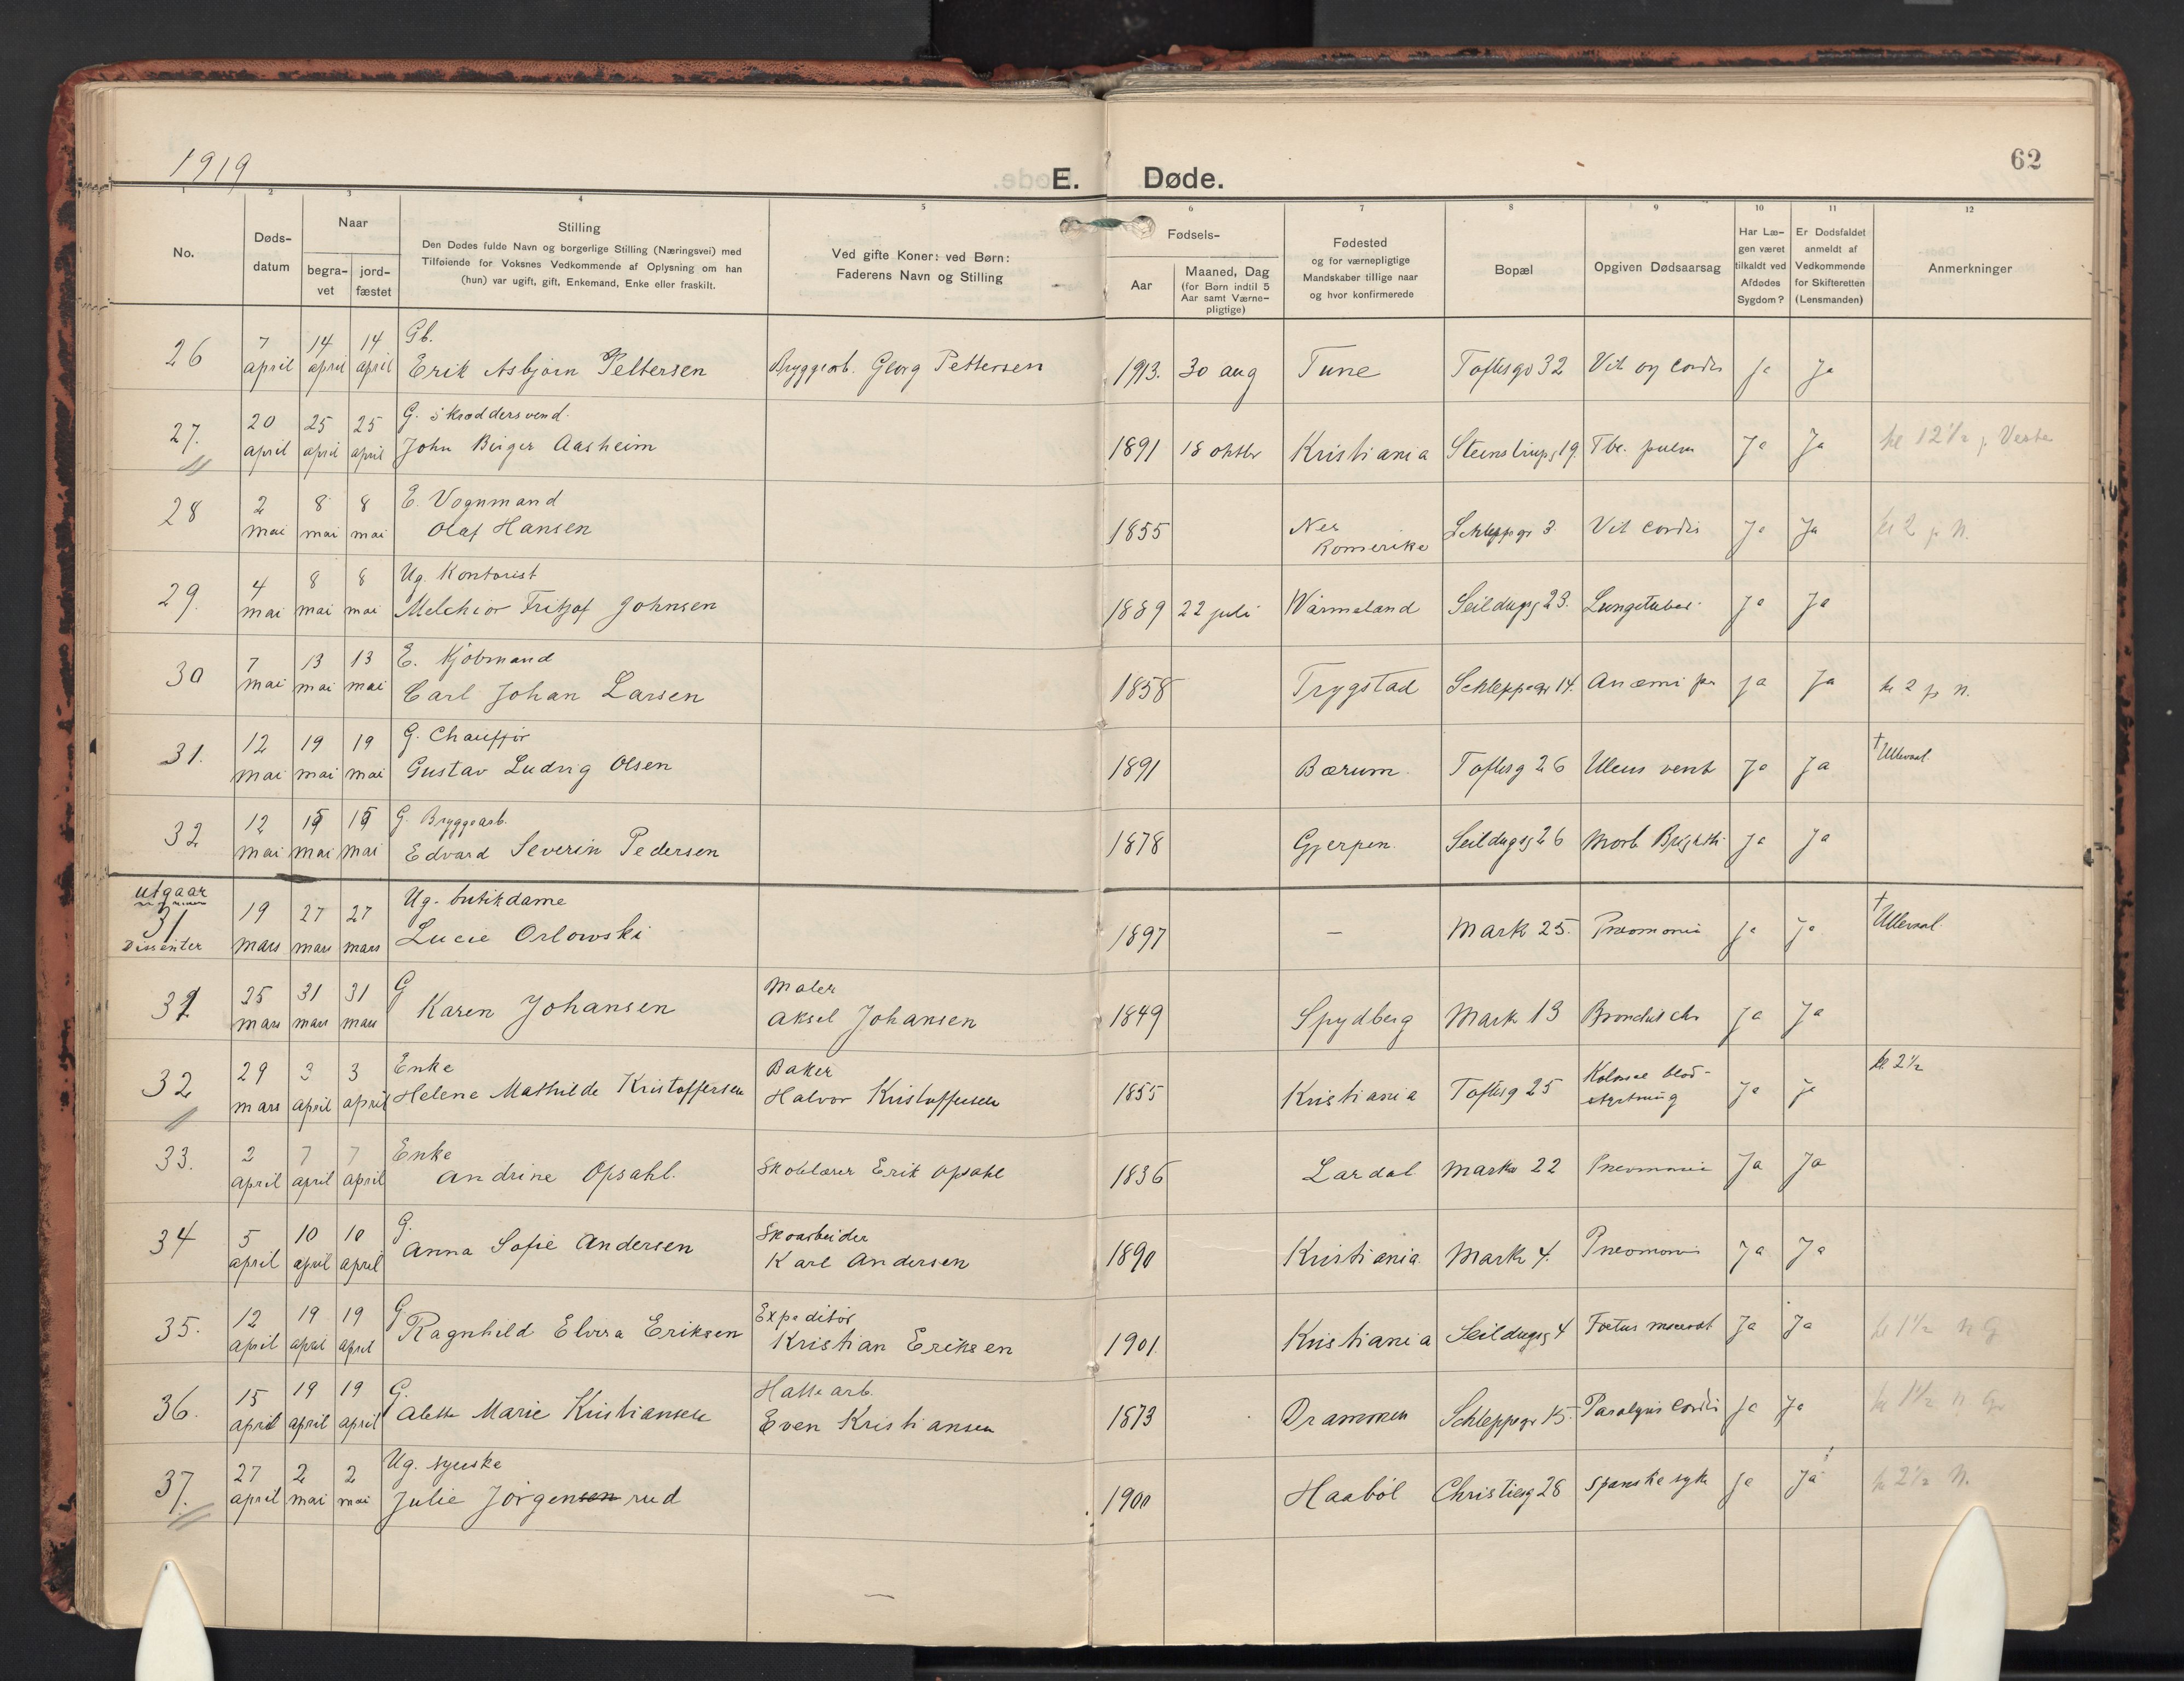 1919
E. Døde.
62
1 2 3 4 5 6 7 8 9 10 11 12
No.
Døds-
datum
Naar
begra-
vet
jord-
fæstet
Stilling
Den Dødes fulde Navn og borgerlige Stilling (Næringsvei) med
Tilføiende for Voksnes Vedkommende af Oplysning om han
(hun) var ugift, gift, Enkemand, Enke eller fraskilt.
Ved gifte Koner: ved Børn:
Faderens Navn og Stilling
Fødsels-
Aar
Maaned, Dag
(for Børn indtil 5
Aar samt Værne-
pligtige)
Fødested
og for værnepligtige
Mandskaber tillige naar
og hvor konfirmerede
Bopæl
Opgiven Dødsaarsag
Har Læ-
gen været
tilkaldt ved
Afdødes
Sygdom?
Er Dødsfaldet
anmeldt af
Vedkommende
for Skifteretten
(Lensmanden)
Anmerkninger
7 14 14 Gb.
26 april april april Erik Asbjørn Pettersen Bryggearb. Georg Pettersen 1913. 30 aug Tune Toftesgt 32 Vit og cordis ja Ja
20 25 25 G. skræddersvend.
27. april april april John Birger Aasheim 1891 18 oktbr Kristiania Steenstrupsg 19. Tbc. pulm Ja Ja kl 12 1/2 p. Vestre
2 8 8 E. Vognmand
28 mai mai mai Olaf Hansen 1855 Nes Romerike Schleppegr 3. Vit cordis Ja Ja kl 2 p N.
4 8 8 Ug. Kontorist
29. mai mai mai Melchior Fritjof Johnsen 1889 22 juli Wärmeland Seildugsg 23. Lungetuber. Ja Ja
7 13 13 E. Kjøbmand
30 mai mai mai Carl Johan Larsen 1858 Trygstad Schleppegr 14. Anæmi per ja Ja kl 2 p N.
12 19 19 G. Chauffør
31. mai mai mai Gustav Ludvig Olsen 1891 Bærum. Toftesg 26 Ulcus vent Ja Ja † Ullevaal.
12 15 15 G. Bryggearb.
32 mai mai mai Edvard Severin Pedersen 1878 Gjerpen. Seildugsg 26 Morb Brightii Ja Ja
utgaar
31 19 27 27 Ug. butikdame
Dissenter mars mars mars Lucie Orlowski 1897 — Mark 25. Pneomonie ja ja † Ullevaal.
25 31 31 G Maler
32 mars mars mars Karen Johansen Aksel Johansen 1849 Spydberg Mark 13 Bronchit chr ja Ja
29 3 3 Enke Baker
32 mars april april Helene Mathilde Kristoffersen Halvor Kristoffersen 1855 Kristiania Toftesg 25 blod-
styrtning Ja ja kl 2 1/2
2 7 7 Enke
33. april april april Andrine Opsahl. Skolelærer Erik Opsahl 1836 Lardal Mark 22 Pneomonie Ja Ja
5 10 10 G. Skoarbeider
34 april april april Anna Sofie Andersen Karl Andersen 1890 Kristiania. Mark 4. Pneomoni Ja Ja
12 19 19 G Expeditør
35. april april april Ragnhild Elvira Eriksen Kristian Eriksen 1901 Kristiania Seildugsg 4 Foetus macerat Ja Ja kl 1 1/2 N G
15 19 19 G. Hattearb.
36. april april april Alette Marie Kristiansen Even Kristiansen 1873 Drammen Schleppegr 15. Paralysis cordis ja Ja kl 1 1/2 N Gr
27 2 2 Ug. syerske
37. april mai mai Julie Jørgensen rud 1900 Haabøl Christiesg 28 spanske syke ja Ja kl 2 1/2 N.